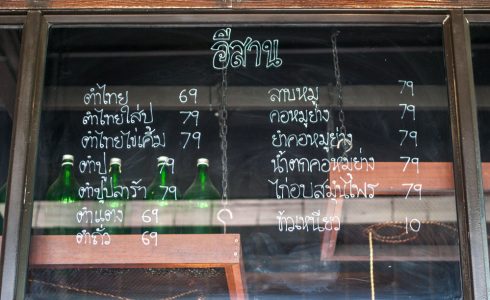 อีสาน
ตำไทย 69
ตำไทยใส่ปู 79
ตำไทยไข่เค็ม 79
ตำปู 79
ตำปูปลาร้า 79
ตำแตง 69
ตำถั่ว 69
ลาบหมู 79
คอหมูย่าง 79
ยำคอหมูย่าง 79
น้ำตกคอหมูย่าง 79
ไก่อบสมุนไพร 79
ข้าวเหนียว 10